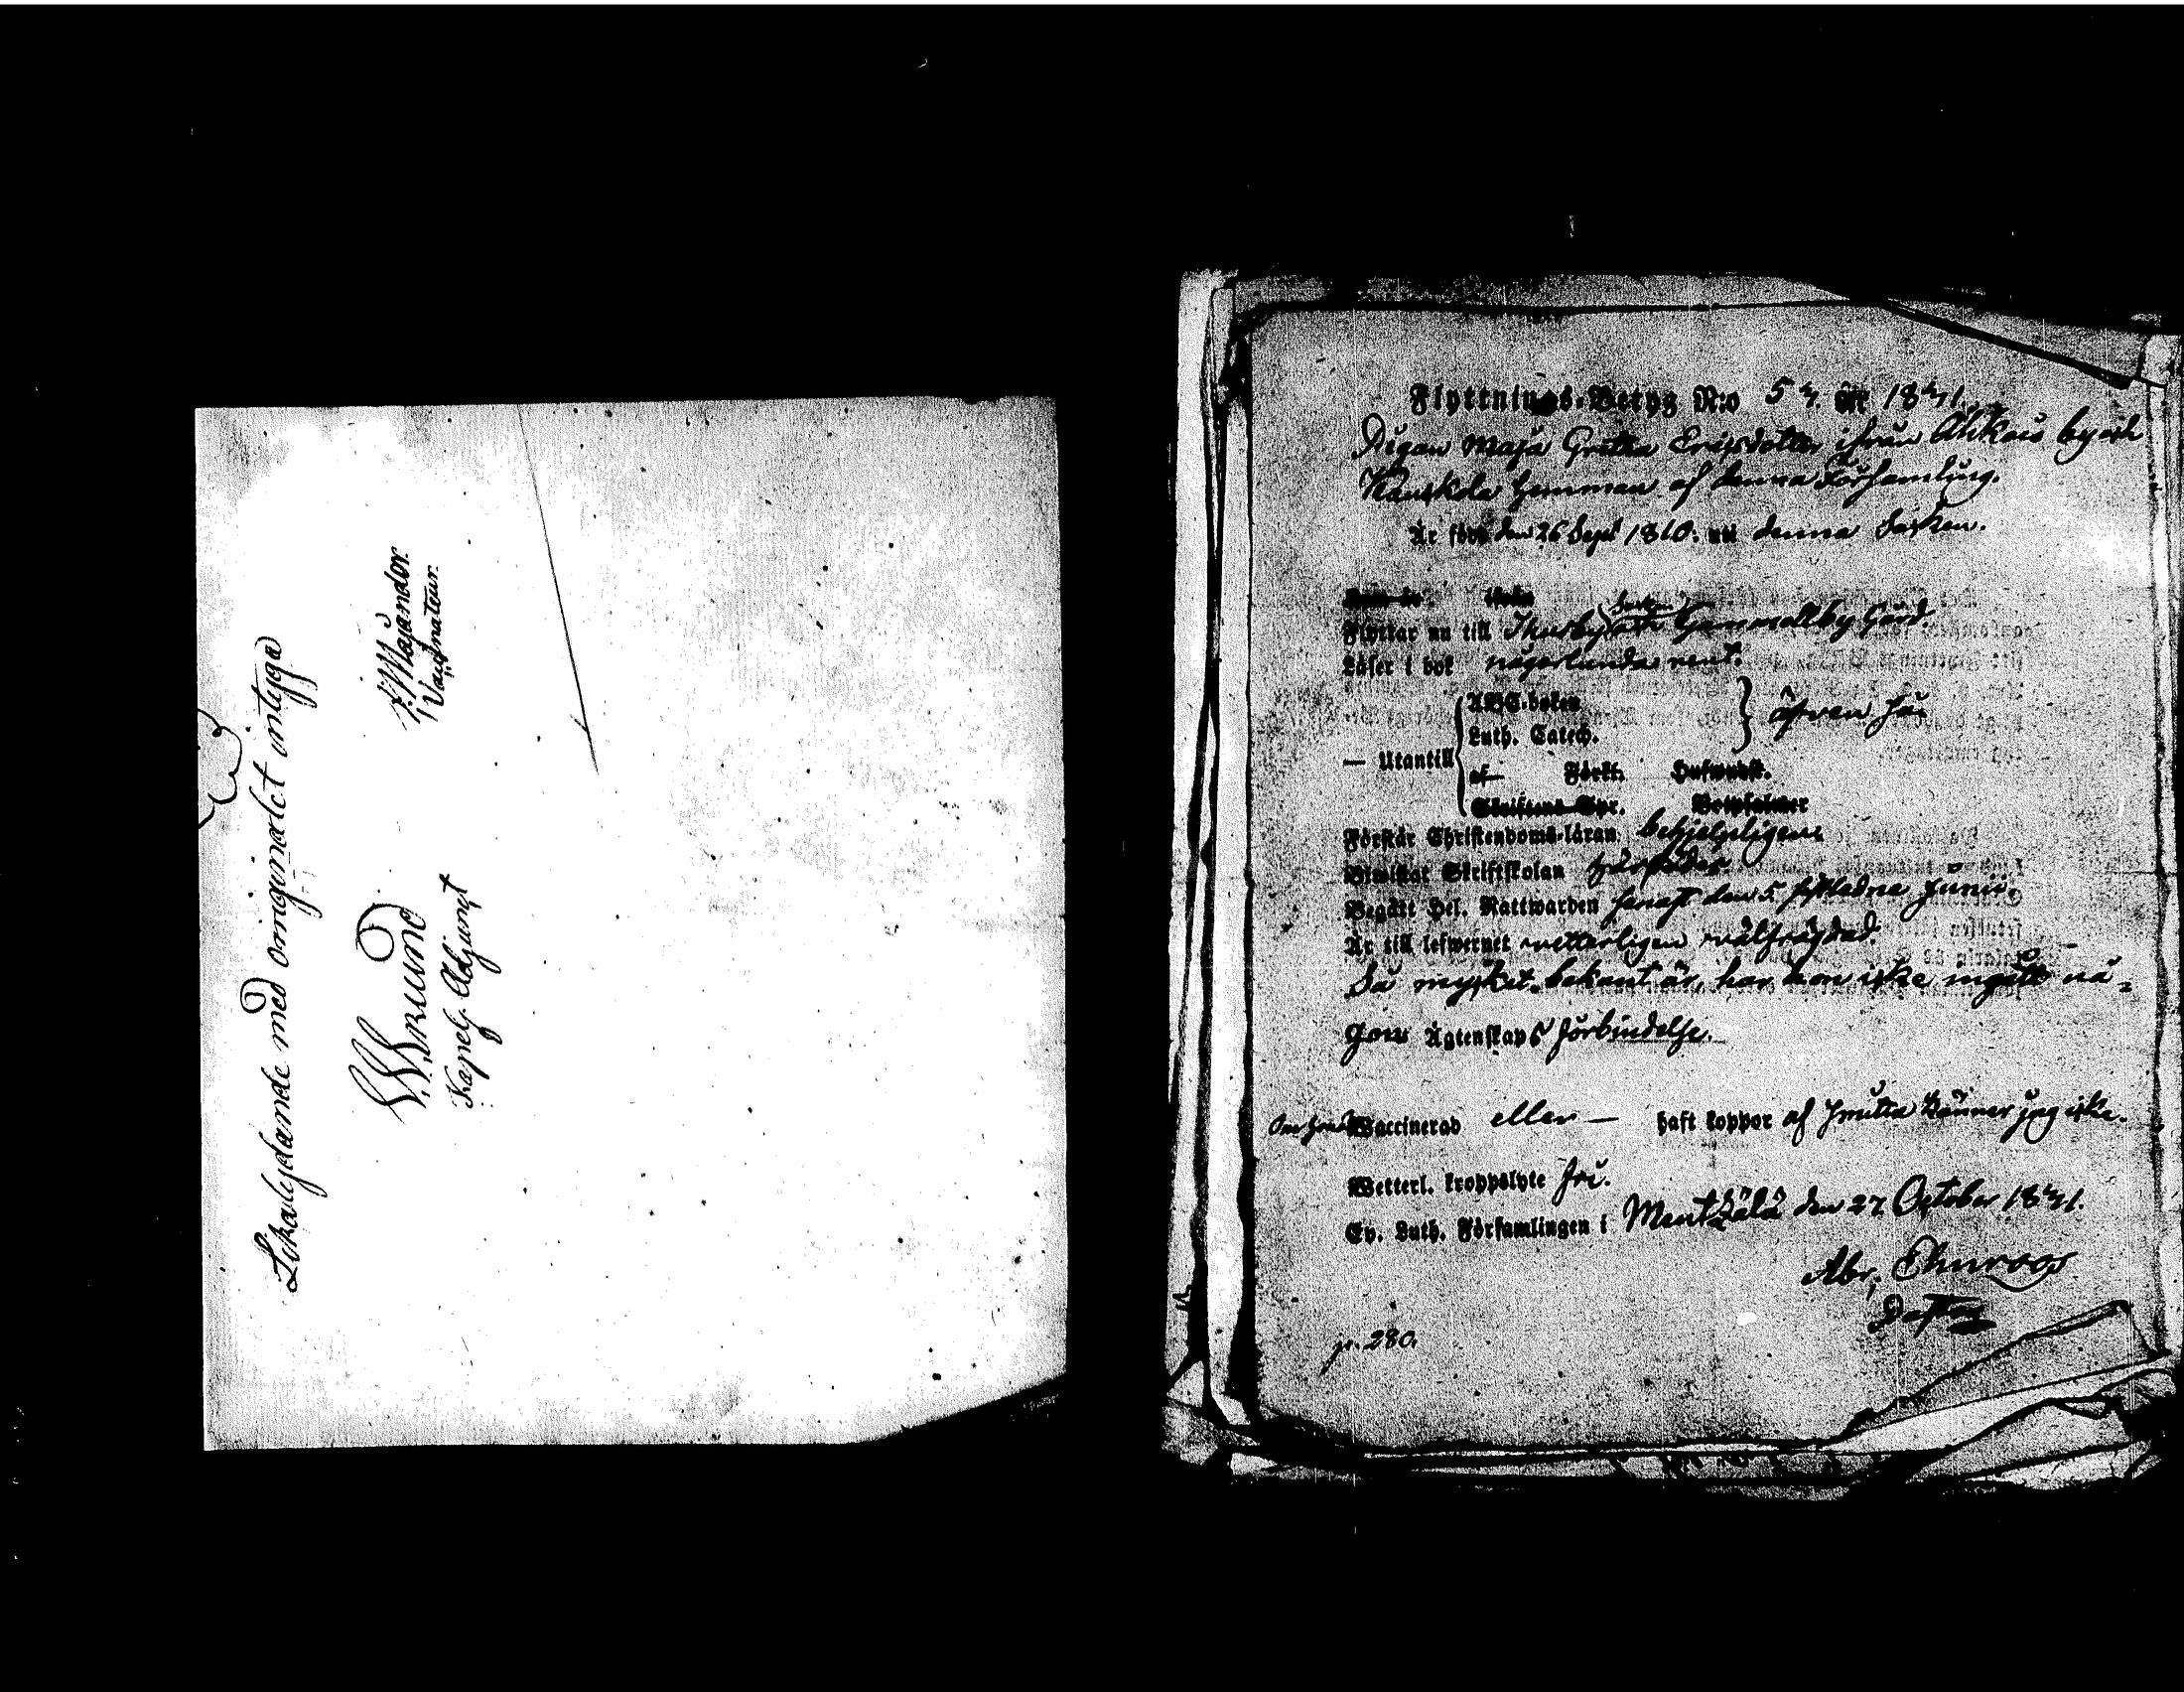 Likalydande med originalet intyga
W. Brunou
Kapel. Adjunct
J. Majander.
Vaccinateur.
Flyttnings-Betyg N:o 54. år 1841.
Pigan Maja Greta Ericsdotter ifrån Ahkois by och
Kauskola hemman af denna Församling.
Är född den 26 Sept 1810. uti denna Socken.
Flyttar nu till Thusby Socken Gammallby Gård.
Läser i bok någorlunda rent.
— Utantill
ABC-boken
Luth. Catech.
äfven så
af Förkl. Husworst.
Christend. Spr. Botpsalmer
Förstår Christendoms-läran behjelpligen.
Bewistat Skriftskolan
Begått Hel. Nattwarden senast den 5. sistledne Junii.
Är till lefwernet wetterligen wälfrägdad.
Så mycket bekant är, har hon icke ingått nå-
gon Ägtenskaps förbindelse.
Om hon är Waccinerad eller — haft koppor af Smitta känner jag icke.
Wetterl. kroppslyte fri.
Ev. Luth. Församlingen i Mentzälä den 27 October 1841.
Abr. Thuroos
Pastor
p. 280.